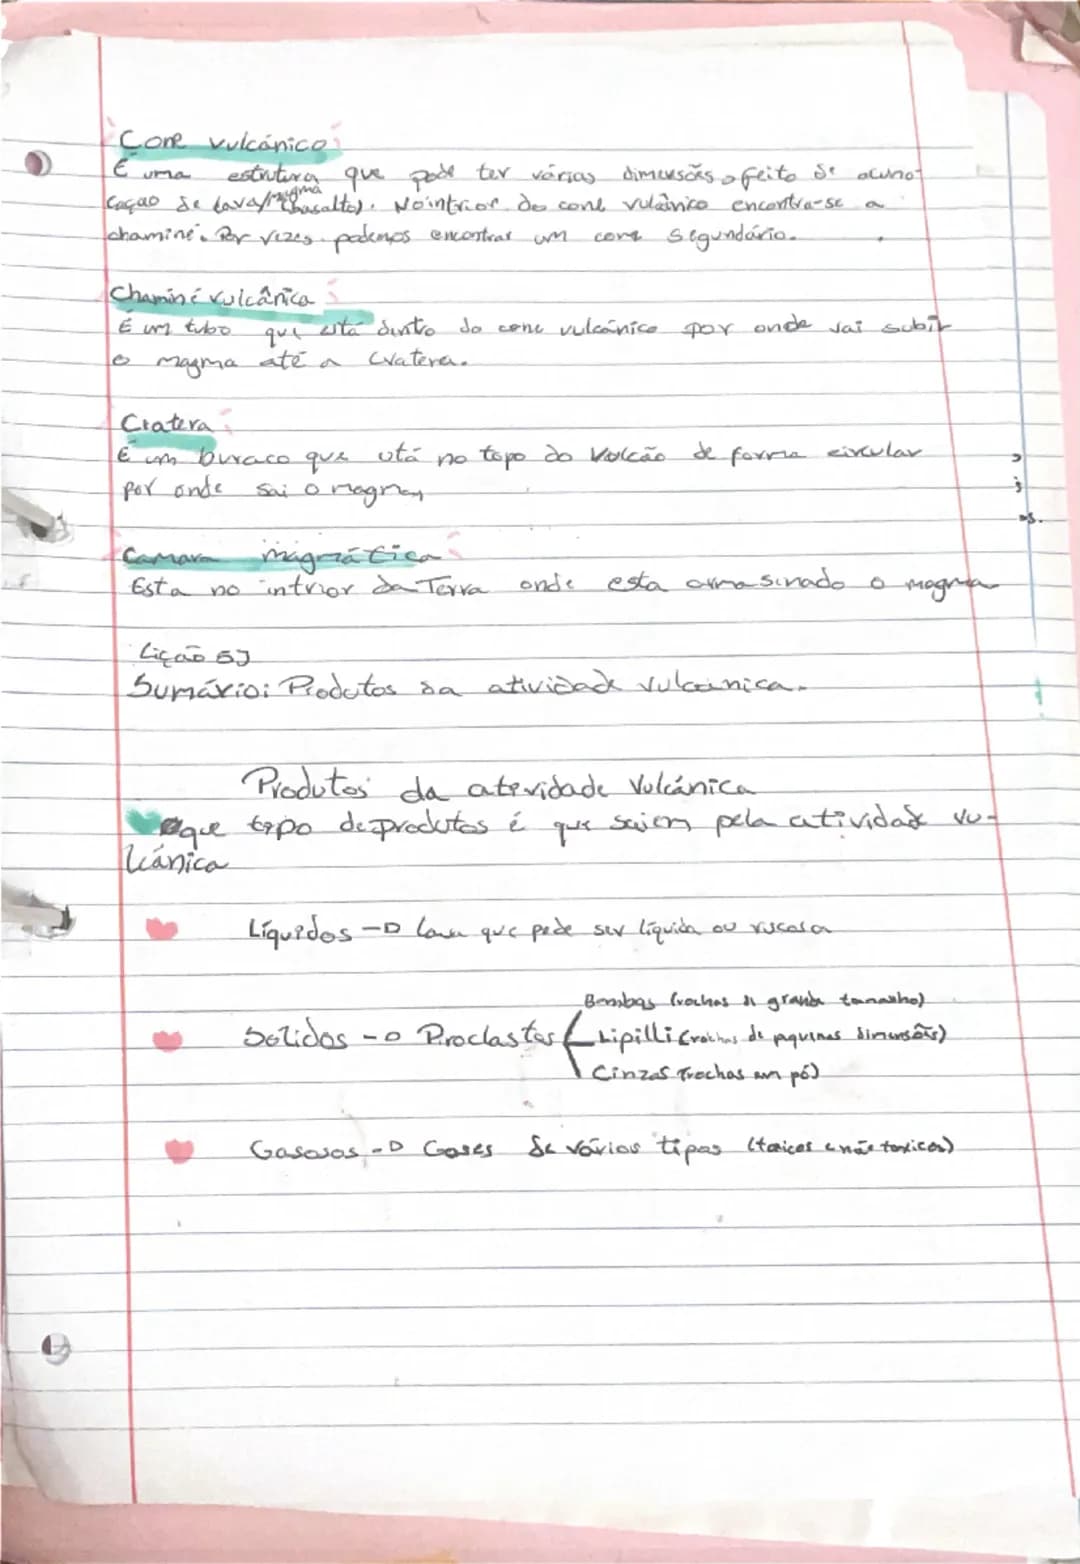 Cone vulcánico:
É uma estrutura que pode ter várias dimensões, feito de acumo-
cação de lava/magma (basalto). No intrior do cone vulcânico encontra-se a
chaminé. Por vezes podemos encontrar um cone segundário.
Chaminé vulcânica:
É um tubo que está dentro do cone vulcânico por onde vai subir
o magma até a cratera.
Cratera:
É um buraco que está no topo do Volcão de forma circular
por onde sai o magma,
Camara magmática:
Esta no intrior da Terra onde esta armasinado o magma
Lição
Sumário: Produtos da atividade vulcanica.
Produtos da atividade Vulcánica
que tipo de produtos é que saiem pela atividade vu-
lcánica
Líquidos → lava que pode ser líquida ou viscosa
Bombas (rochas de grande tamanho)
Solidos → Piroclastos Lipilli (rochas de pquenas dimensões)
Cinzas (rochas em pó)
Gasosos → Gases de vários tipos (toxicos e não toxicos)